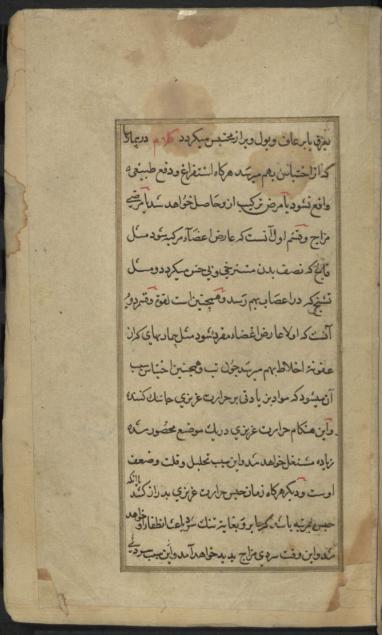 بعرق یا برعاف و بول و براز محتبس میکردد کلام در بیماریها
که از احتباس بهم میرسد هرکاه استفراغ و دفع طبیعی
واقع نشود یا مرض ترکیب از او حاصل خواهد شد یا مرض
مزاج و قسم اول آنست که عارض اعضاء مرکبه شود مثل
فالج که نصف بدن مسترخی و بی حس میکردد و مثل
تشنج که در اعصاب بهم رسد و همچنین است لقوه و قسم دویم
آنست که اولا عارض اعضاء مفرد شود مثل بیماریهای که از
عفونة اخلاط بهم میرسد چون تب و همچنین احتباس سبب
آن میشود که مواد بن یادتی بر حرارت غریزی جا تنك کننده
و این هنکام حرارت غریزی در یك موضع محصور شده
زیاده مشتعل خواهد شد و این سبب تحلیل و قلت و ضعف
اوست و دیکر هرکاه زمان حبس حرارت غریزی بدراز کشد
حبس بمرتبه باشد که جا برو بغایت تنك شود باعث انطفاء او خواهد
شد و این وقت سردی مزاج پدید خواهد آمد و این سبب سردی